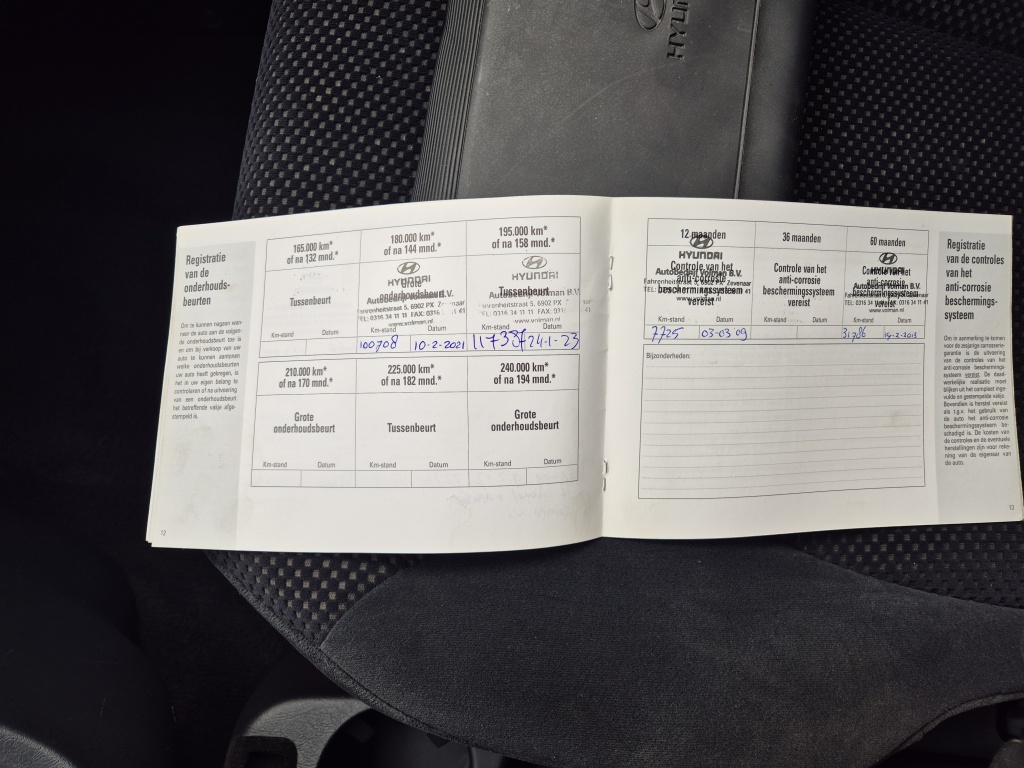 HYUN
Registratie
van de
onderhouds-
beurten
Om te kunnen nagaan wan-
neer de auto aan de volgen-
de onderhoudsbeurt toe is
en om bij verkoop van uw
auto te kunnen aantonen
welke onderhoudsbeurten
uw auto heeft gekregen, is
het in uw eigen belang te
controleren of na uitvoering
van een onderhoudsbeurt
het betreffende vakje afge-
stempeld is.
165.000 km*
of na 132 mnd.*
Tussenbeurt
Km-stand Datum
180.000 km*
of na 144 mnd.*
HYUNDAI
Grote
onderhoudsbeurt
Autobedrijf Volman B.V.
Fahrenheitstraat 5, 6902 PX Zevenaar
TEL: 0316 34 11 11 FAX: 0316 41
www.volman.nl
Km-stand Datum
100708 10-2-2021
195.000 km*
of na 158 mnd.*
HYUNDAI
Tussenbeurt
Autobedrijf Volman B.V.
Fahrenheitstraat 5, 6902 PX
TEL: 0316 34 11 11 FAX: 031
www.volman.nl
Km-stand Datum
24-1-23
210.000 km*
of na 170 mnd.*
Grote
onderhoudsbeurt
Km-stand Datum
225.000 km*
of na 182 mnd.*
Tussenbeurt
Km-stand Datum
240.000 km*
of na 194 mnd.*
Grote
onderhoudsbeurt
Km-stand Datum
12
12 maanden
HYUNDAI
Controle van het
Autobedrijf Volman B.V.
anti-corrosie
Fahrenheitstraat 5, 6902 PX Zevenaar
beschermingssysteem
vereist
www.volman.nl
Km-stand Datum
7725 03-03-09
36 maanden
Controle van het
anti-corrosie
beschermingssysteem
vereist
Km-stand Datum
60 maanden
HYUNDAI
Controle van het
Autobedrijf Volman B.V.
anti-corrosie
beschermingssysteem
vereist
www.volman.nl
Km-stand Datum
Bijzonderheden:
Registratie
van de controles
van het
anti-corrosie
beschermings-
systeem
Om in aanmerking te komen
voor de zesjarige carrosserie-
garantie is de uitvoering
van de controles van het
anti-corrosie beschermings-
systeem vereist. De daad-
werkelijke realisatie moet
blijken uit het compleet inge-
vulde en gestempelde vakje.
Bovendien is herstel vereist
als t.g.v. het gebruik van
de auto het anti-corrosie
beschermingssysteem be-
schadigd is. De kosten van
de controles en de eventuele
herstellingen zijn voor reke-
ning van de eigenaar van
de auto.
13